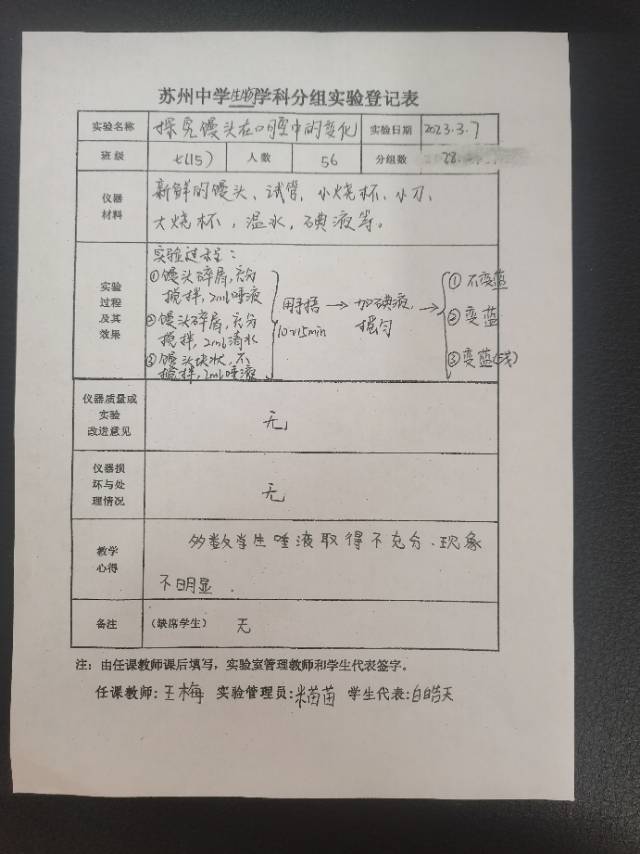 苏州中学生物学科分组实验登记表
实验名称 探究馒头在口腔中的变化 实验日期 2023.3.7
班级 七(15) 人数 56 分组数 28
仪器材料 新鲜的馒头、试管、小烧杯、小刀、
大烧杯，温水，碘液等。
实验过程及其效果
实验过程：
①馒头碎屑，充分
搅拌，2ml唾液
②馒头碎屑，充分
搅拌，2ml清水
③馒头块状，不
搅拌，2ml唾液
用手捂
10~15min
→ 加碘液，
摇匀 →
①不变蓝
②变蓝
③变蓝(浅)
仪器质量或实验改进意见 无
仪器损环与处理情况 无
教学心得 多数学生唾液取得不充分、现象
不明显．
备注 (缺席学生) 无
注：由任课教师课后填写，实验室管理教师和学生代表签字。
任课教师:王梅 实验管理员:米苗苗 学生代表:白皓天